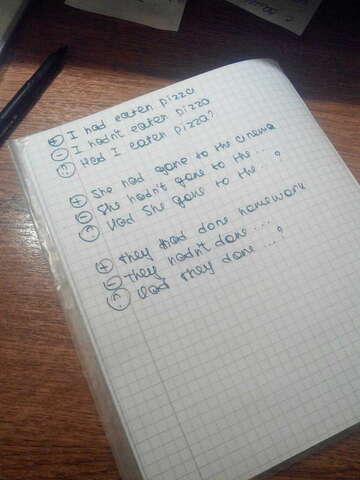 ⊕ I had eaten pizza
⊖ I hadn't eaten pizza
? Had I eaten pizza?
⊕ She had gone to the cinema
⊖ She hadn't gone to the...
? Had she gone to the...?
⊕ They had done homework
⊖ They hadn't done....
? Had they done ...?